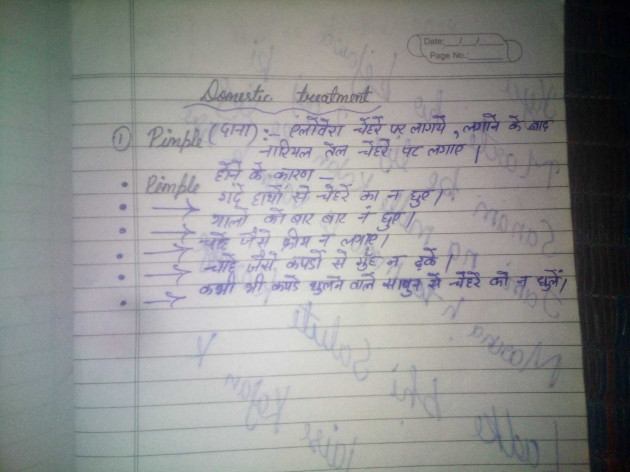 Date: / /
Page No.:
Domestic treatment
① Pimple (दाना) :- एलोवेरा चेहरे पर लागये, लगाने के बाद
नारियल तेल चेहरे पर लगाए।
• Pimple होने के कारण —
• → गंदे हाथों से चेहरे का न छुए।
• → गालो को बार बार न छुए।
• → चाहे जैसे क्रीम न लगाए।
• → चाहे जैसे कपडो से मुँह न ढके।
• → कभी भी कपडे धुलने वाले साबुन से चेहरे को न धुलें।